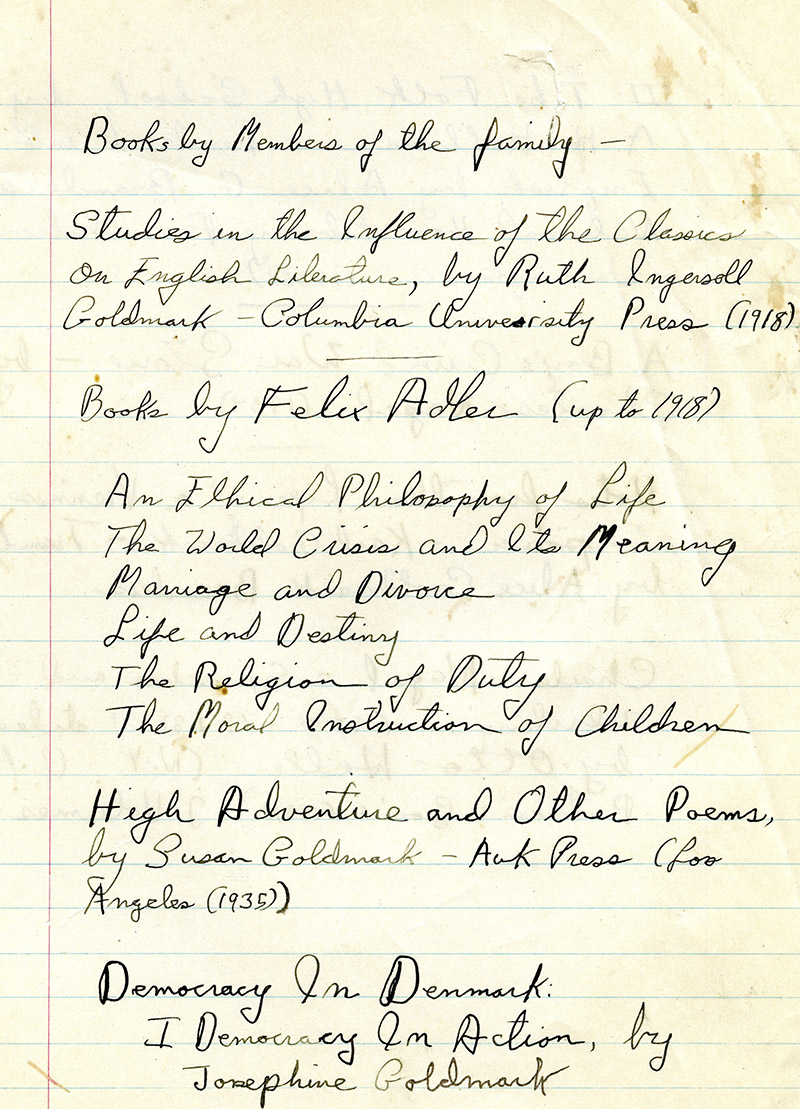 Books by Members of the family —
Studies in the Influence of the Classics
on English Literature, by Ruth Ingersoll
Goldmark – Columbia University Press (1918)
Books by Felix Adler (up to 1918)
An Ethical Philosophy of Life
The World Crisis and Its Meaning
Marriage and Divorce
Life and Destiny
The Religion of Duty
The Moral Instruction of Children
High Adventure and Other Poems,
by Susan Goldmark – Auk Press (Los
Angeles (1935))
Democracy In Denmark:
I Democracy In Action, by
Josephine Goldmark